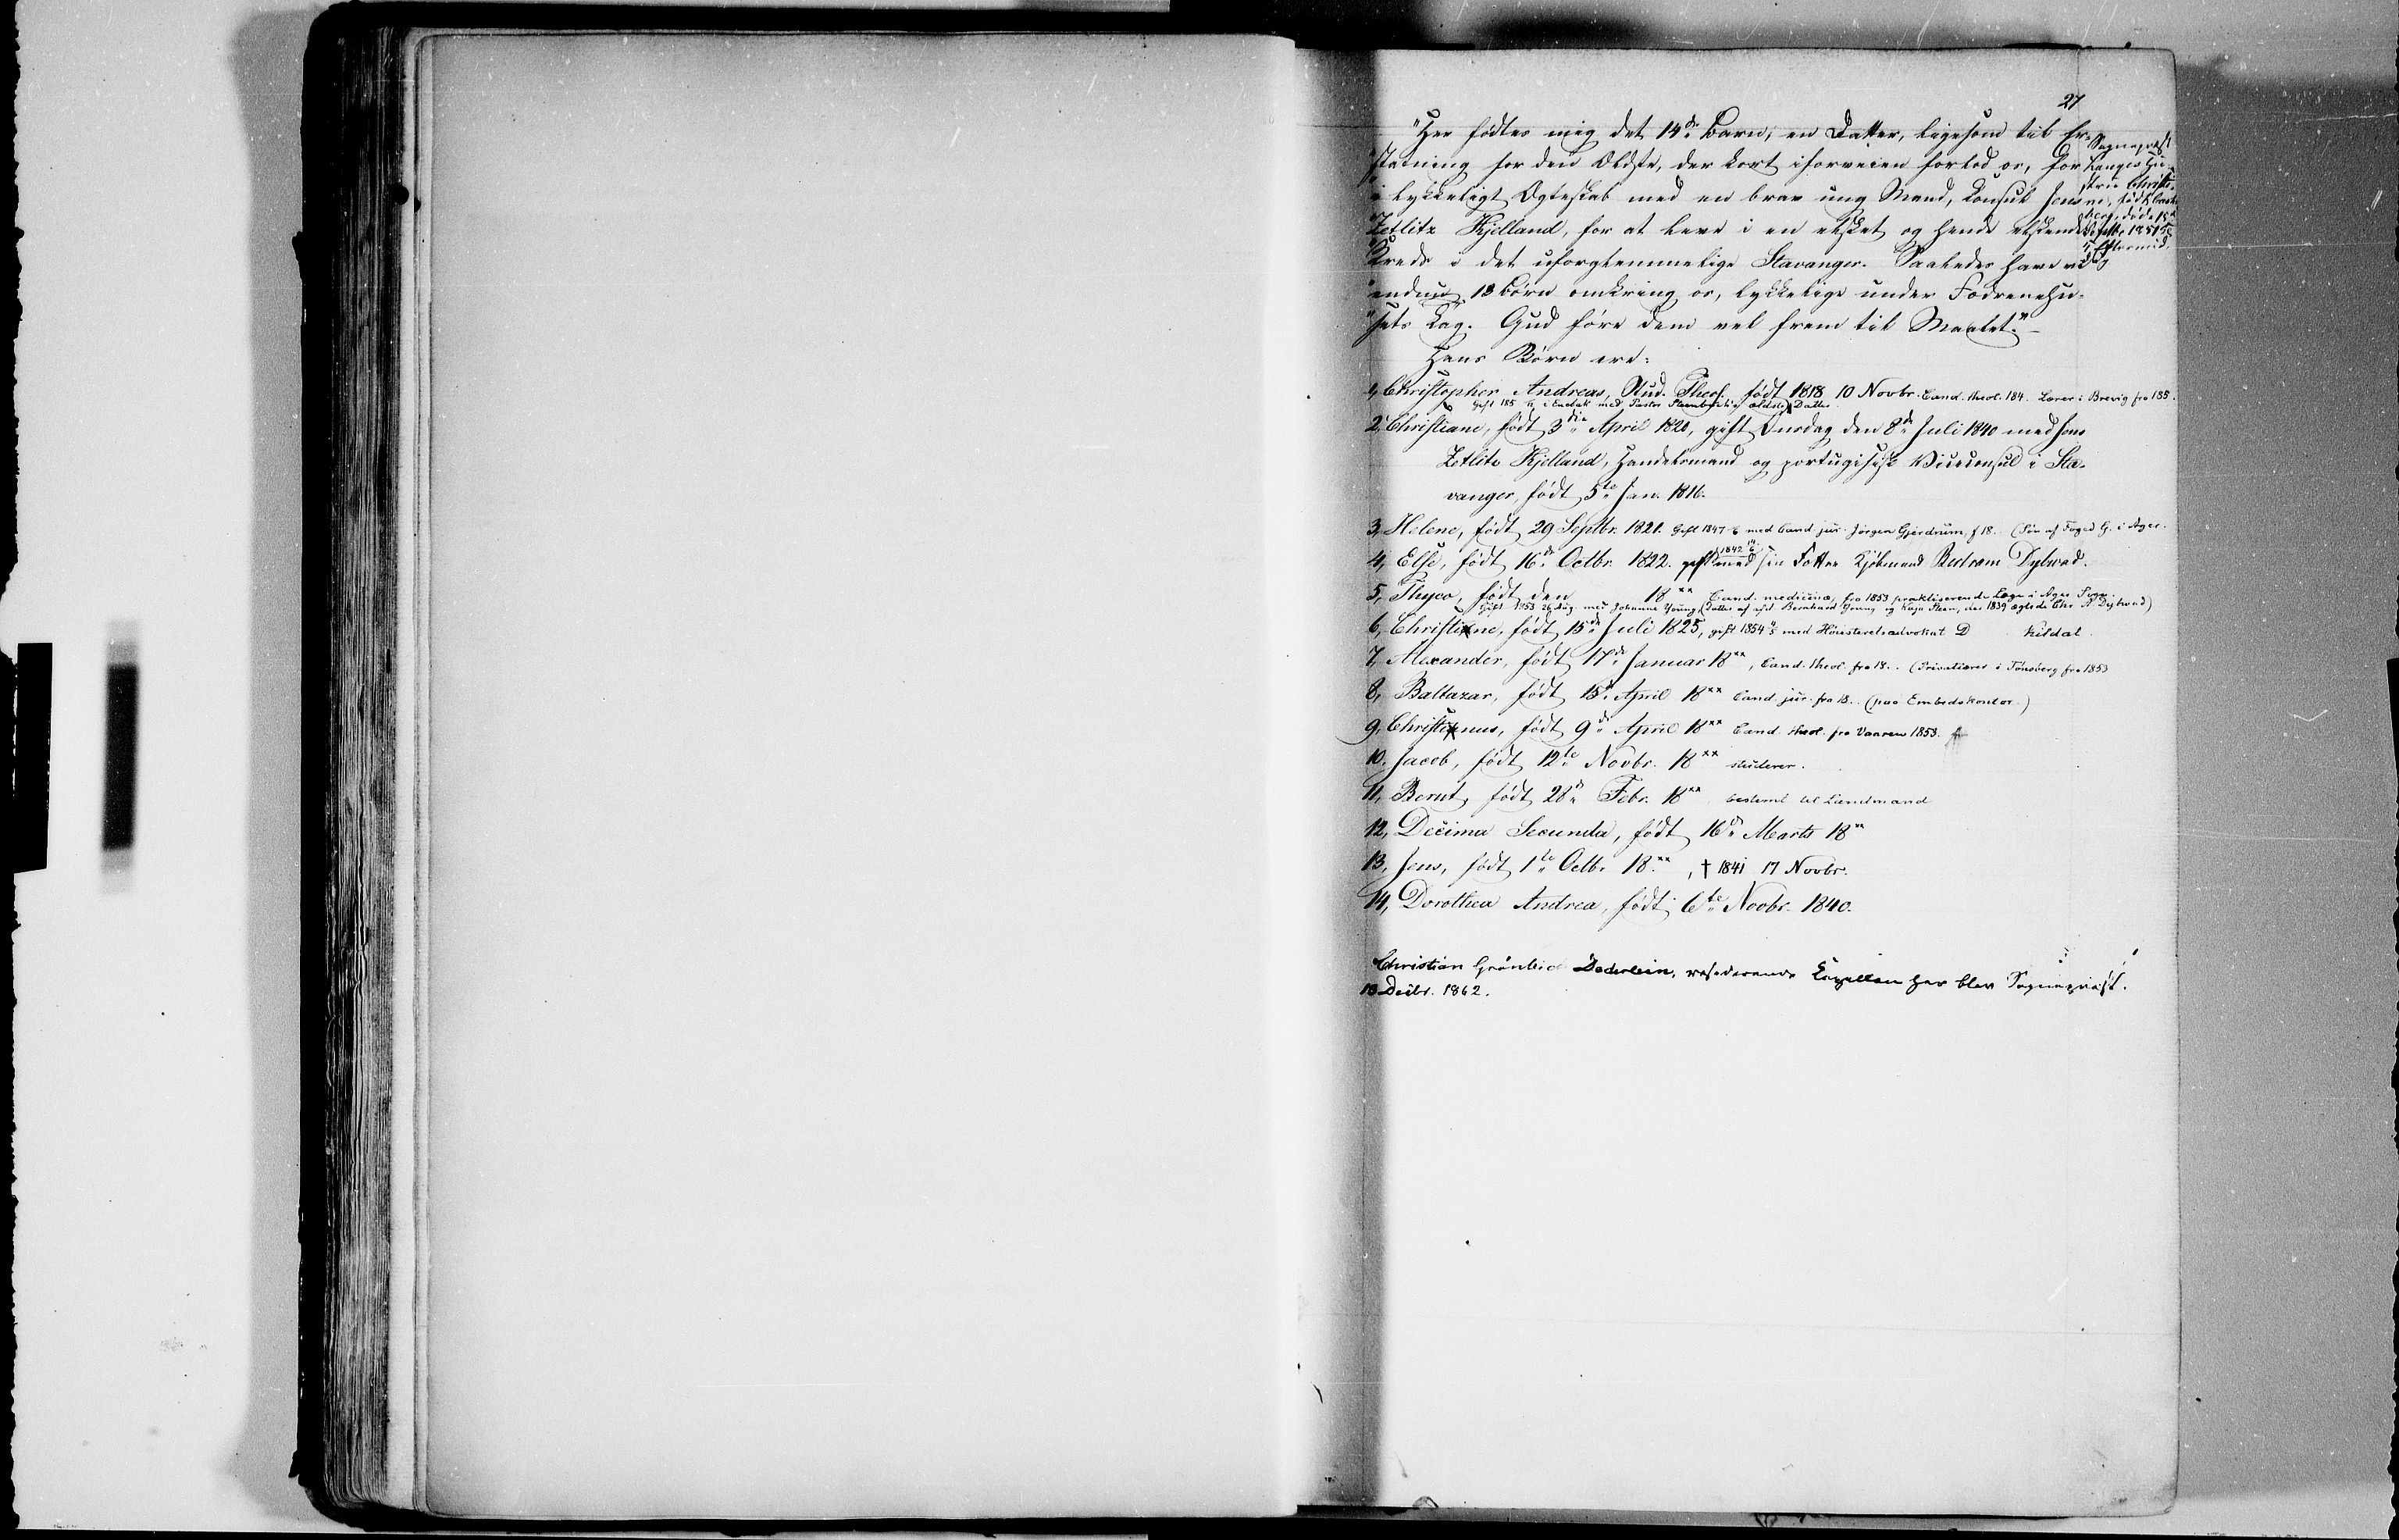 27
"Her fødtes mig det 14de Barn, en Datter, ligesom til Er-
"statning for den Ældste, der kort iforveien forlod os, for
"i lykkeligt Ægteskab med en brav ung Mand, Konsul Jens
"Zetlitz Kjelland, for at leve i en elsket og hende elskende
"Kreds i det uforglemmelige Stavanger. Saaledes have vi
"endnu 13 Børn omkring os, lykkelige under Fædrenehu-
"sets Tag. Gud føre dem vel frem til Maalet."
Sognepræst
Langes Hu-
strue Christi-
ne, født
død 15de
1851
Eftermid-
dag
Hans Børn ere:
1, Christopher Andreas, Stud. Theol. født 1818 10 Novbr. Cand. theol. 184. Lærer i Brevig fra 185.
Gift 185 med Pastor ældste Datter
2, Christiane, født 3die April 1820, gift Onsdag den 8de Juli 1840 med Jens
Zetlitz Kjelland, Handelsmand og portugisisk Viceconsul i Sta-
vanger, født 5te Jan. 1816.
3, Helene, født 29 Septbr. 1821. Gift 1847 med Cand. jur. Jørgen Gjerdrum, f 18.. (Søn af Foged G. i Ager.
4, Else, født 16de Octbr. 1822. gift 1842 med sin Fætter Kjøbmand Dybwad.
5, Thyco, født den 18** Cand. medicinæ, fra 1853 praktiserende Læge i Ager Sogn.
Gift 1853 26 Aug. med Johanne Young (Datter af afd. Bernhard Young og Kaja Steen, der 1839 ægtede Chr. A Dybwad)
6, Christine, født 15de Juli 1825, gift 1854 4/5 med Høiesteretsadvokat D Kildal.
7, Alexander, født 17de Januar 18**, Cand. theol. fra 18.. (Privatlærer i Tønsberg fra 1853
8, Baltazar, født 15de April 18** Cand. jur. fra 18.. (paa Embedskontor.)
9, Christinus, født 9de April 18** Cand. theol. fra Vaaren 1853.
10. Jacob, født 12te Novbr. 18** studerer.
11, Bernt, født 28de Febr. 18** bestemt til Landmand
12, Decima Secunda, født 16de Marts 18**
13, Jens, født 1te Octbr. 18**, † 1841 17 Novbr.
14, Dorothea Andrea, født 6te Novbr. 1840.
Christian Grønbech Døderlein, residerende Kapellan her blev Sognepræst.
13 Decbr. 1862.